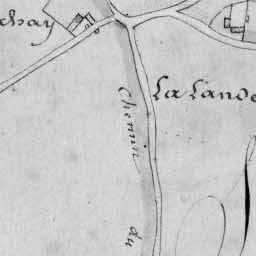 chay
La Lande
Chemin
du